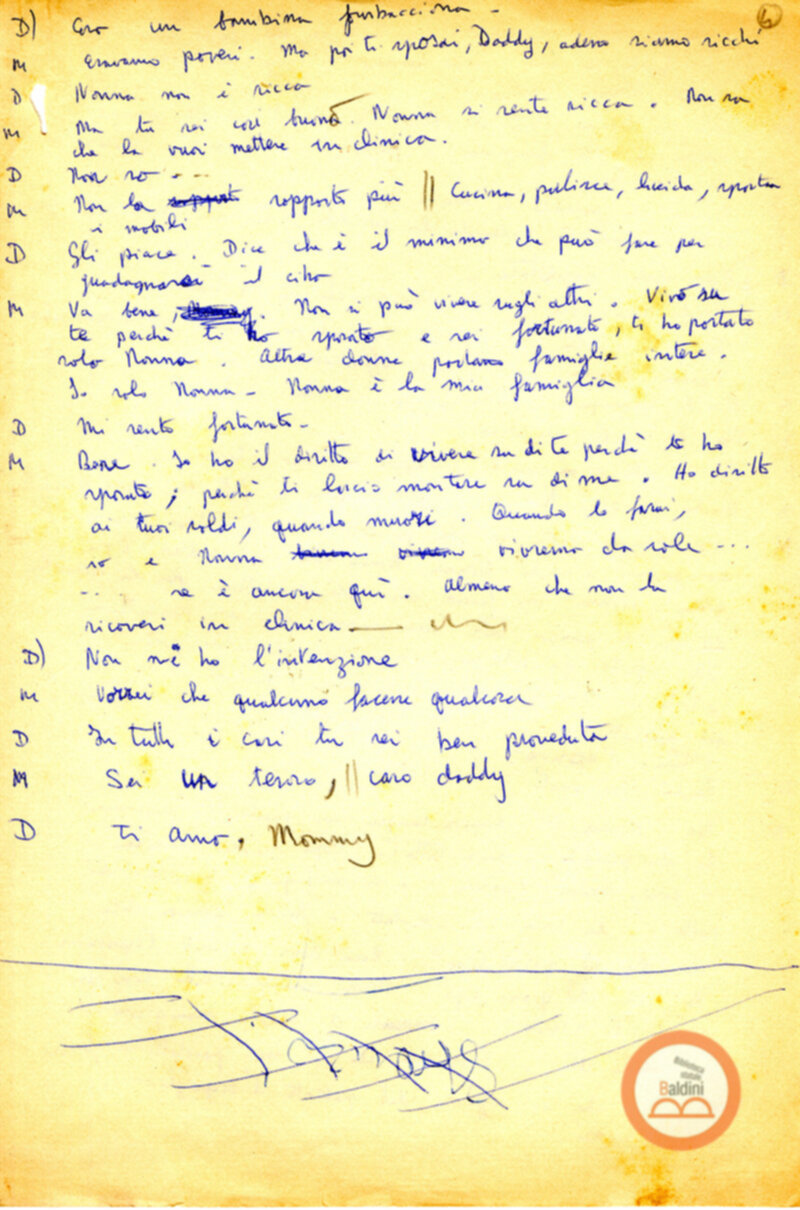 4
D) Ero un bambina furbacciona -
M Eravamo poveri. Ma poi ti sposai, Daddy, adesso siamo ricchi
D Nonna non è ricca
M Ma tu sei così buono. Nonna si sente ricca. Non sa
che la vuoi mettere in clinica.
D Non so - - -
M Non la sopporto più || Cucina, pulisce, lucida, sposta
i mobili
D Gli piace. Dice che è il minimo che può fare per
guadagnarsi il cibo
M Va bene, . Non si può vivere sugli altri. Vivo su
te perchè ti ho sposato e sei fortunato, ti ho portato
solo Nonna. Altre donne portano famiglie intere.
Io solo Nonna - Nonna è la mia famiglia
D Mi sento fortunato -
M Bene. Io ho il diritto di vivere su di te perchè ti ho
sposato; perchè ti lascio montare su di me. Ho diritto
ai tuoi soldi, quando muori. Quando lo farai,
io e Nonna vivremo da sole - - -
- - se è ancora quì. Almeno che non la
ricoveri in clinica
D) Non nè ho l'intenzione
M Vorrei che qualcuno facesse qualcosa
D In tutti i casi tu sei ben proveduta
M Sei un tesoro, || caro daddy
D Ti amo, Mommy
Biblioteca
statale
Baldini